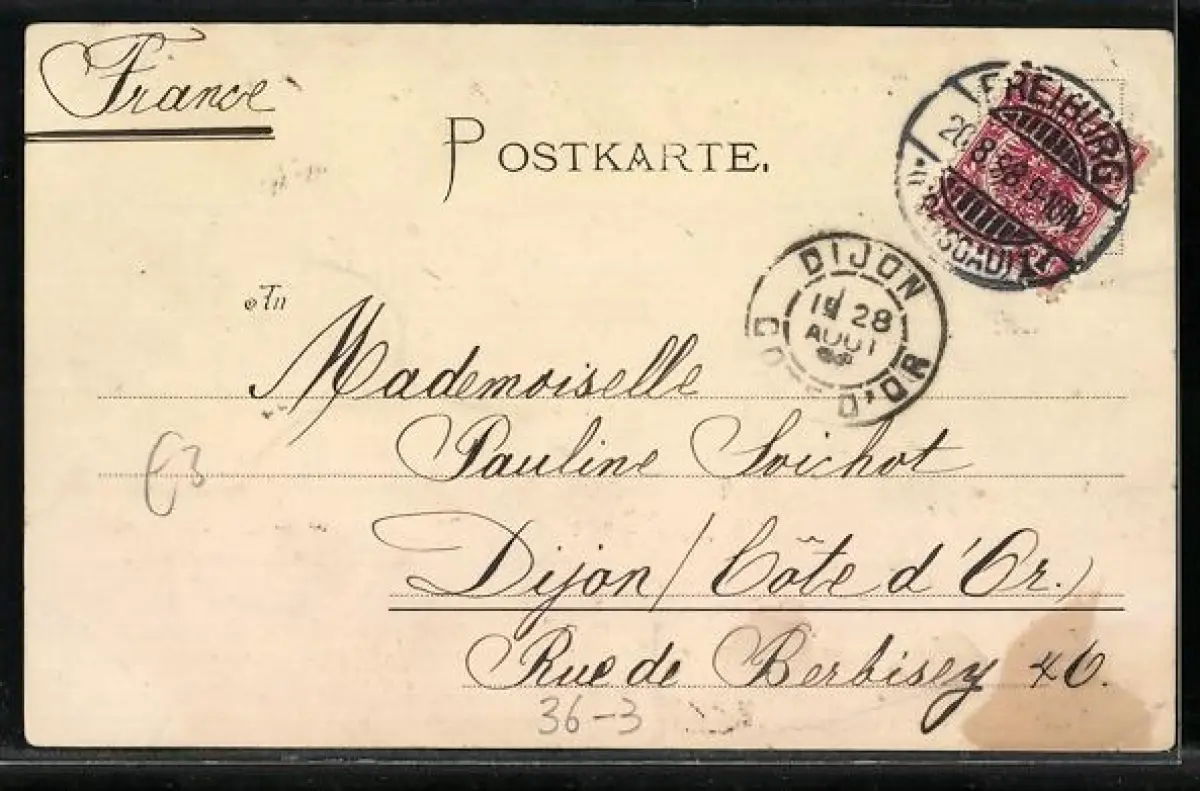 France
POSTKARTE.
FREIBURG
8.98.9-10N.
(BREISGAU)
DIJON
28
AOUT
COTE D'OR
An
Mademoiselle
Pauline Soichot
Dijon (Côte d'Or.)
Rue de Berbisey
36-3